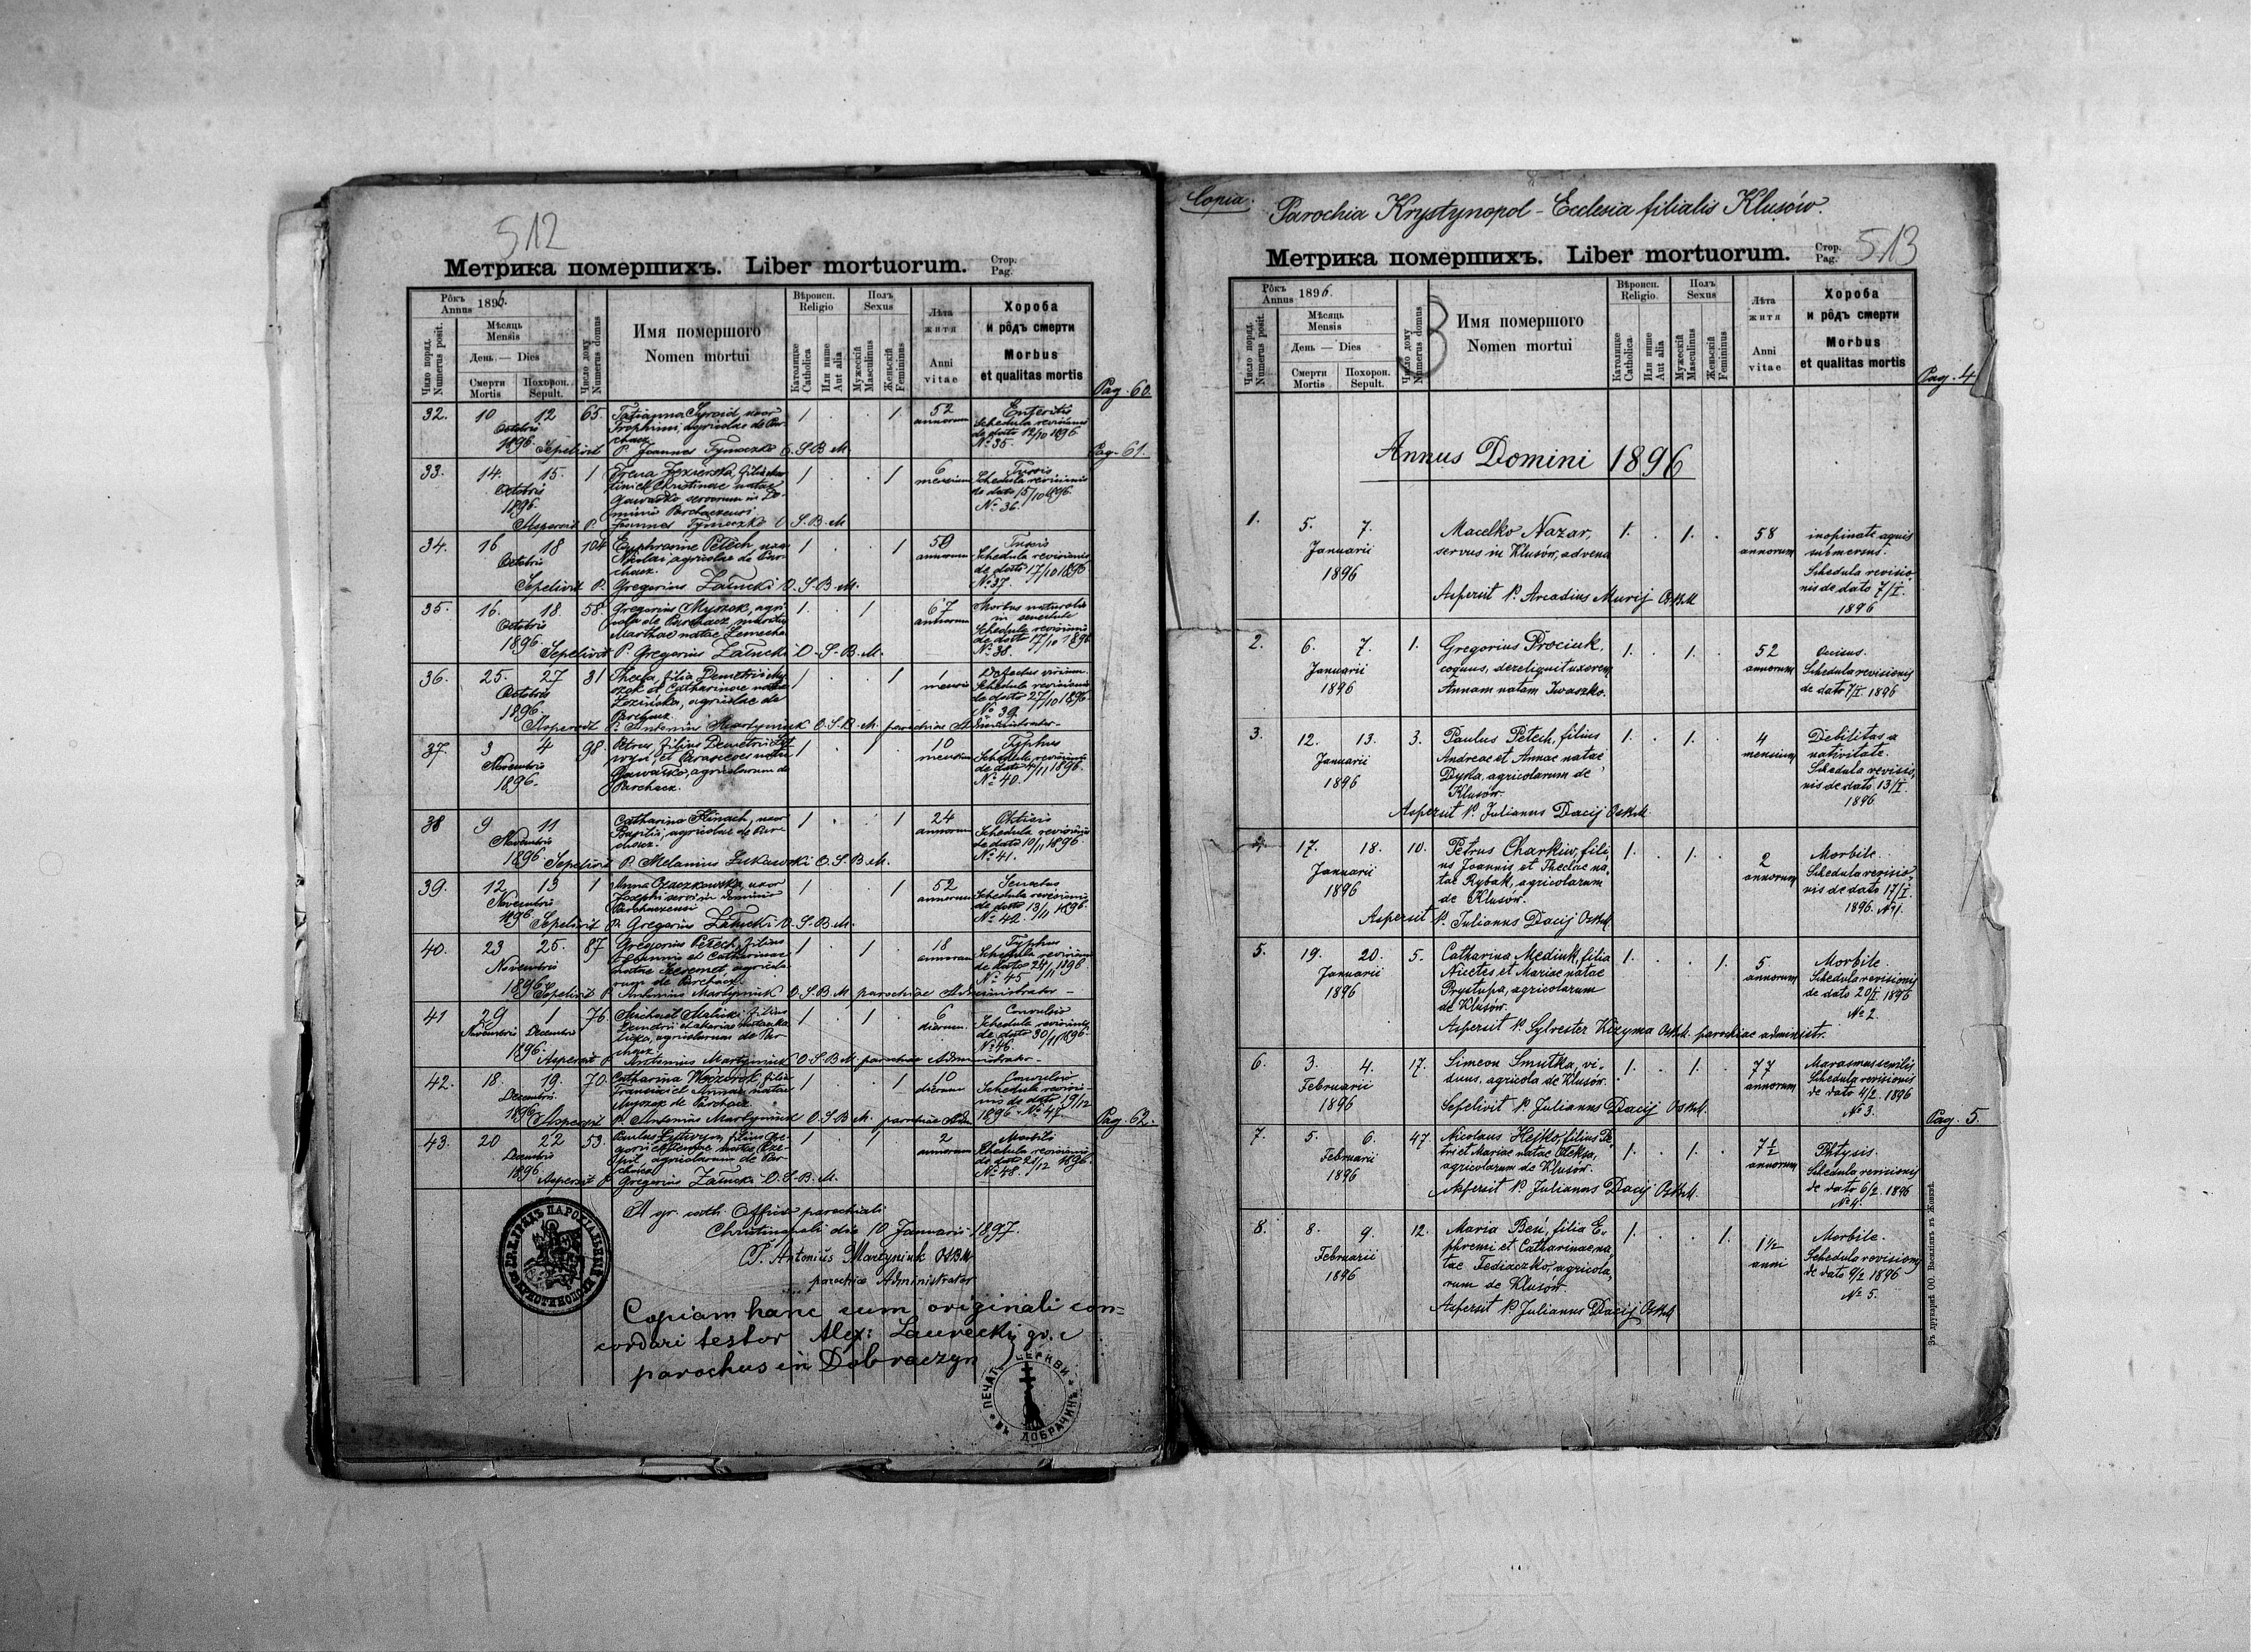 512
Метрика помершихъ. Liber mortuorum. Стор. Pag.
Рôкъ Annus 1896.
Число поряд. Numerus posit.
Мѣсяць Mensis
День — Dies
Смерти Mortis
Похорон. Sepult.
Число дому Numerus domus
Имя помершого
Nomen mortui
Вѣроисп. Religio
Католицке Catholica
Или инше Aut alia
Полъ Sexus
Мужескій Masculinus
Женьскій Femininus
Лѣта житя
Anni vitae
Хороба
и рôдъ смерти
Morbus
et qualitas mortis
Pag. 60.
32. 10 12 65. Tatianna Syroid, uxor 1 . . 1 52 Enteritis
Octobris Trophimi, agricolae de Par- annorum Schedula revisionis
chacz de dato 12/10 1896
1896. Sepelivit P. Joannes Tymoczko O.S.B.M. № 35.
Pag. 61.
33. 14. 15. 1 Irena Jezierska, filia 1 . . 1 6 Tussis
Octobris et Christinae natae mensium Schedula revisionis
1896. Gawałko servorum in do- de dato 15/10 1896.
minio Parchaczensi. № 36.
Aspersit P. Joannes Tymoczko O.S.B.M
34. 16 18 104 Euphrosine Petech uxor 1 . . 1 59 Tussis
Octobris Nicolai, agricolae de Par- annorum Schedula revisionis
chacz. de dato 17/10 1896
Sepelivit P. Gregorius Załucki O.S.B.M. № 37.
35. 16. 18. 58. Gregorius Myszok, agri- 1. . 1 67 Morbus naturalis
Octobris cola de Parchacz, maritus annorum in senectute
Marthae natae Schedula revisionis
de dato 17/10 1896
1896. Sepelivit P. Gregorius Załucki O.S.B.M. № 38.
36. 25. 27 81 Thecla, filia Demetrii My- 1 . . 1 1 Defectus virium.
Octobris szok et Catharinae natae mensis Schedula revisionis
1896. Łozińska, agricolae de de dato 27/10 1896.
Parchacz. № 39.
Aspersit P. Antonius Martyniuk O.S.B.M. parochiae Administrator
37. 3 4 98. Petrus, filius Demetrii Lyt- 1 . 1 . 10 Typhus
Novembris wyn, et Parasceves natae mensium Schedula revisionis
1896. Gawałko, agricolarum de de dato 4/11 1896.
Parchacz. № 40.
38 9 11 Catharina Hinach, uxor 1 . . 1 24
Novembris Basilii, agricolae de Par- annorum Schedula revisionis
chacz. de dato 10/11 1896.
1896. Sepelivit P. Melanius Łukawski O.S.B.M. № 41.
39. 12 13 1 Anna Czaczkowska, uxor 1 . . 1 52 Senectus
Novembris Josephi servi in dominio annorum Schedula revisionis
Parchaczensi de dato 13/11 1896.
1896 Sepelivit P. Gregorius Załucki O.S.B.M. № 42.
40. 23 25. 87 Gregorius Petech, filius 1 . 1 . 18 Typhus
Novembris Joannis et Catharinae annorum Schedula revisionis
natae Szeremet, agricola- de dato 24/11 1896
rum de Parchacz. № 45
1896 Sepelivit P. Antonius Martyniuk O.S.B.M. parochiae Administrator
41 29 1 76. Michael Malicki, filius 1 . 1 . 6 Convulsio
Novembris Decembris dierum. Schedula revisionis
agricolarum de Par- de dato 30/11 1896
chacz. № 46.
1896. Aspersit P. Antonius Martyniuk O.S.B.M. parochiae Administrator
42. 18. 19. 70. Catharina Weczorek, filia 1 . . 1 10 Convulsio
Decembris Francisci et Annae natae dierum Schedula revisio-
Myszok de Parchacz. nis de dato 19/12
1896 Aspersit P. Antonius Martyniuk O.S.B.M. parochiae Adm. 1896 № 47
Pag. 62.
43. 20 22 53. Paulus Lytwyn, filius Gre- 1 . 1 2 Morbili
Decembris annorum Schedula revisionis
agricolarum de Par- de dato 21/12 1896
chacz № 48.
1896. Aspersit P. Gregorius Załucki O.S.B.M.
A gr. cath. Officio parochiali
Christinopoli die 10 Januarii 1897.
P. Antonius Martyniuk OSBM
parochiae Administrator
Copiam hanc cum originali con=
cordari testor Alex: Laurecki gr. c
parochus in Dobraczyn
ПЕЧАТЬ ЦЕРКВИ
ВЪ ДОБРАЧИНѢ
Copia.
Parochia Krystynopol - Ecclesia filialis Klusów.
Метрика помершихъ. Liber mortuorum. Стор. Pag. 513
Рôкъ Annus 1896.
Число поряд. Numerus posit.
Мѣсяць Mensis
День — Dies
Смерти Mortis
Похорон. Sepult.
Число дому Numerus domus
Имя помершого
Nomen mortui
Вѣроисп. Religio
Католицке Catholica
Или инше Aut alia
Полъ Sexus
Мужескій Masculinus
Женьскій Femininus
Лѣта житя
Anni vitae
Хороба
и рôдъ смерти
Morbus
et qualitas mortis
Pag. 4
Annus Domini 1896
1. 5. 7. Macelko Nazar, 1. . 1. . 58 inopinate aquis
Januarii servus in Klusów, advena annorum submersus.
1896 Schedula revisio-
nis de dato 7/I.
Aspersit P. Arcadius Murij OSBM 1896
2. 6. 7. 1. Gregorius Prociuk, 1. . 1. . 52 Occisus.
Januarii coquus, dereliquit uxorem annorum Schedula revisionis
1896 Annam natam Iwaszko. de dato 7/I 1896
3. 12. 13. 3. Paulus Petech, filius 1. . 1. . 4 Debilitas a
Januarii Andreae et Annae natae mensium nativitate.
1896 Dyda, agricolarum de Schedula revisio-
Klusów. nis de dato 13/I.
Aspersit P. Julianus Dacij OSBM. 1896.
4. 17. 18. 10. Petrus Charkiw, fili- 1. . 1. . 2 Morbile.
Januarii us Joannis et Theclae na- annorum Schedula revisio-
1896 tae Rybak, agricolarum nis de dato 17/I.
de Klusów. 1896. № 1.
Aspersit P. Julianus Dacij OSBM.
5. 19. 20. 5. Catharina Mediuk, filia 1. . . 1. 5 Morbile.
Januarii Nicetes et Mariae natae annorum Schedula revisionis
1896 Prystupa, agricolarum de dato 20/I 1896
de Klusów. № 2.
Aspersit P. Sylvester Kizyma OSBM. parochiae administr.
6. 3. 4. 17. Simeon Smutka, vi- 1. . 1. . 77 Marasmus senilis
Februarii duus, agricola de Klusów. annorum Schedula revisionis
1896 de dato 4/2. 1896
Sepelivit P. Julianus Dacij OSBM. № 3.
Pag. 5.
7. 5. 6. 47 Nicolaus Hejko, filius Pe- 1. . 1. . 7½ Phtysis.
Februarii tri et Mariae natae Oleksa, annorum Schedula revisionis
1896 agricolarum de Klusów. de dato 6/2. 1896
Aspersit P. Julianus Dacij OSBM. № 4.
8. 8. 9. 12. Maria Beń, filia E- 1. . . 1. 1½ Morbile.
Februarii phremi et Catharinae na- anni Schedula revisionis
1896 tae Fediaczko, agricola- de dato 9/2 1896
rum de Klusów. № 5.
Aspersit P. Julianus Dacij OSBM
Зъ друкарнѣ ОО. Василіянъ въ Жовквѣ.